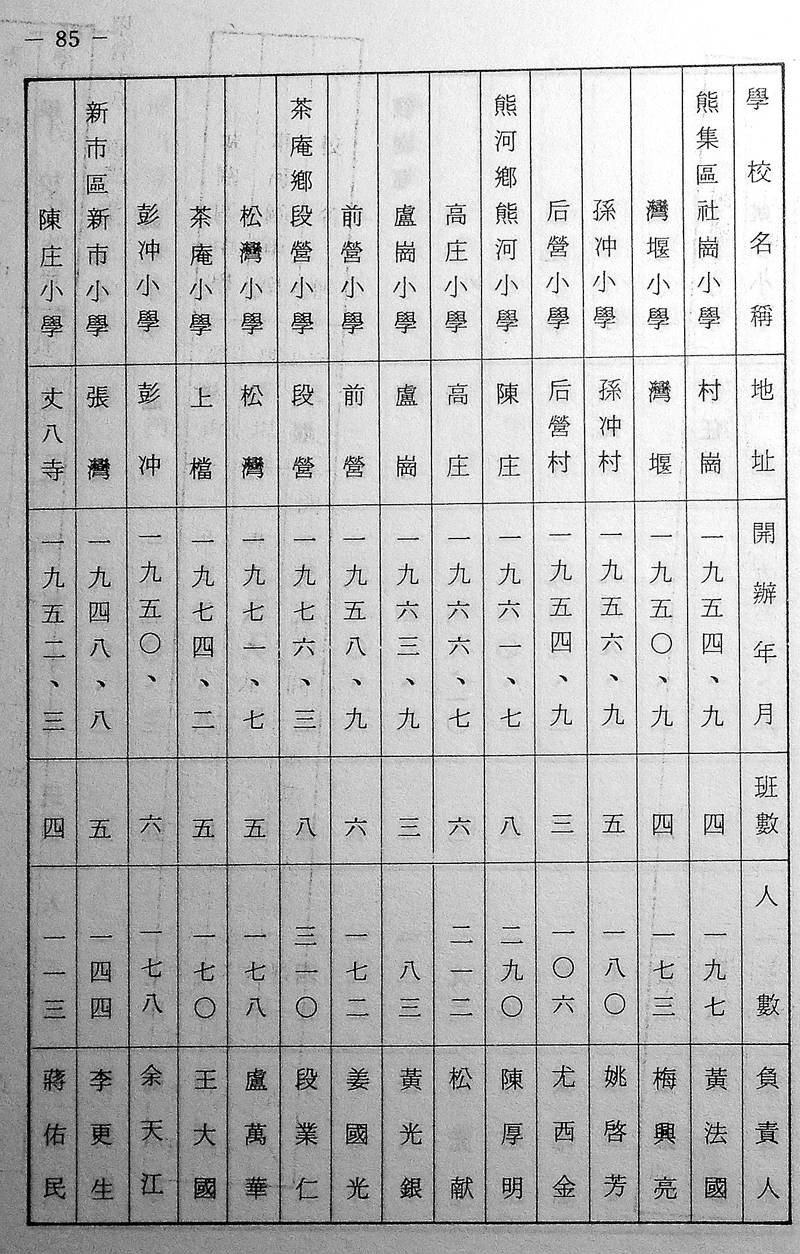 — 85 —
學校名稱 地址 開辦年月 班數 人數 負責人
熊集區社崗小學 村崗 一九五四、九 四 一九七 黃法國
灣堰小學 灣堰 一九五〇、九 四 一七三 梅興亮
孫冲小學 孫冲村 一九五六、九 五 一八〇 姚啓芳
后營小學 后營村 一九五四、九 三 一〇六 尤西金
熊河鄉熊河小學 陳庄 一九六一、七 八 二九〇 陳厚明
高庄小學 高庄 一九六六、七 六 二一二 松献
盧崗小學 盧崗 一九六三、九 三 八三 黃光銀
前營小學 前營 一九五八、九 六 一七二 姜國光
茶庵鄉段營小學 段營 一九七六、三 八 三一〇 段業仁
松灣小學 松灣 一九七一、七 五 一七八 盧萬華
茶庵小學 上檔 一九七四、二 五 一七〇 王大國
彭冲小學 彭冲 一九五〇、 六 一七八 余天江
新市區新市小學 張灣 一九四八、八 五 一四四 李更生
陳庄小學 丈八寺 一九五二、三 四 一一三 蔣佑民